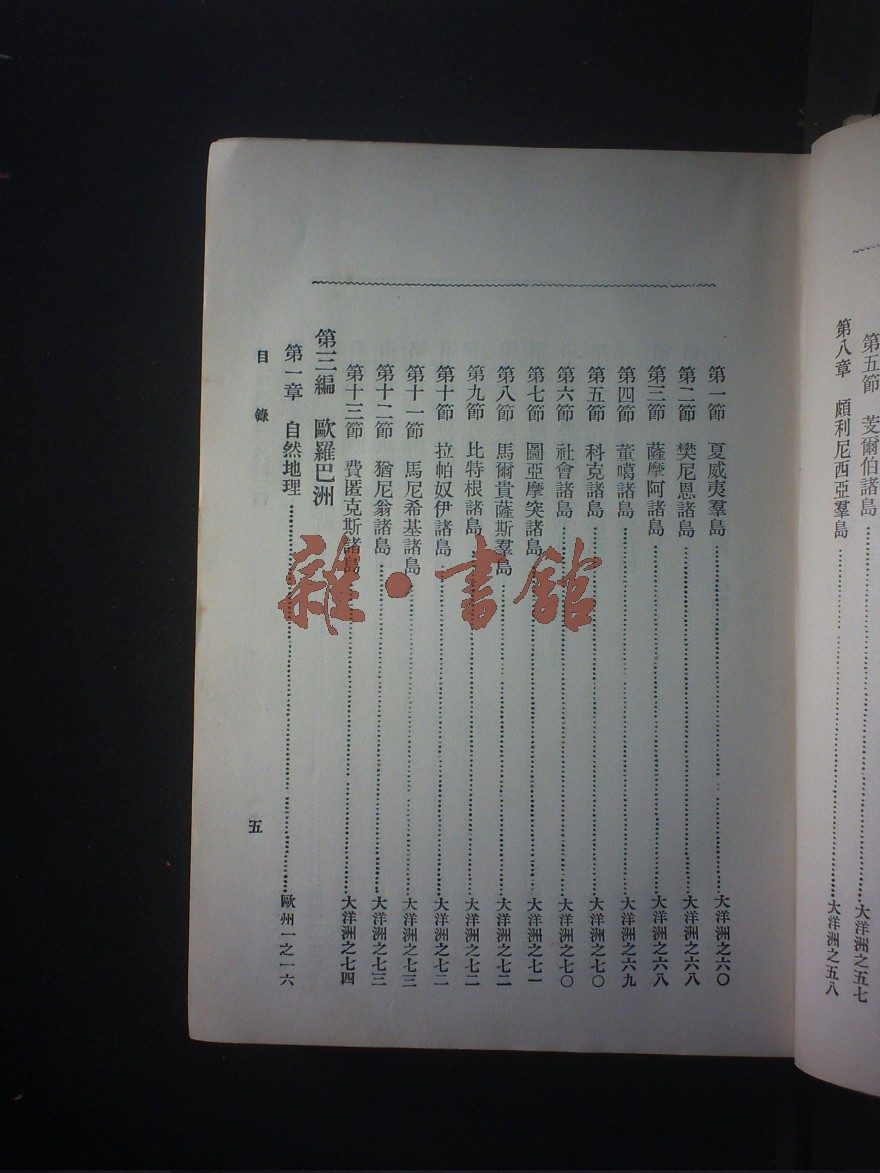 第五節 芰爾伯諸島……大洋洲之五七
第八章 頗利尼西亞羣島……大洋洲之五八
第一節 夏威夷羣島……大洋洲之六〇
第二節 樊尼恩諸島……大洋洲之六八
第三節 薩摩阿諸島……大洋洲之六八
第四節 董噶諸島……大洋洲之六九
第五節 科克諸島……大洋洲之七〇
第六節 社會諸島……大洋洲之七〇
第七節 圖亞摩突諸島……大洋洲之七一
第八節 馬爾貴薩斯羣島……大洋洲之七二
第九節 比特根諸島……大洋洲之七二
第十節 拉帕奴伊諸島……大洋洲之七二
第十一節 馬尼希基諸島……大洋洲之七三
第十二節 猶尼翁諸島……大洋洲之七三
第十三節 費匿克斯諸島……大洋洲之七四
第三編 歐羅巴洲
第一章 自然地理……歐州一之一六
目錄
五
雜·書館